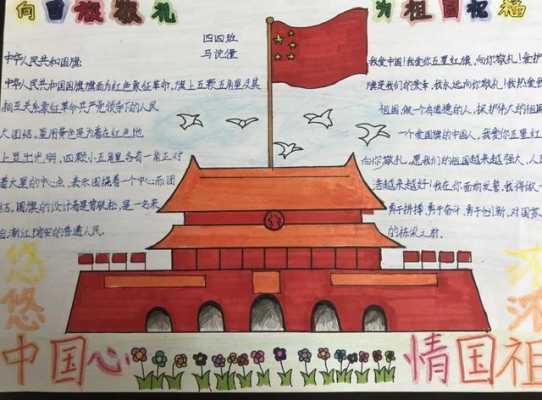 向国旗敬礼
为祖国祝福
四四班
马沈儃
中华人民共和国旗
中华人民共和国国旗旗面为红色象征革命。旗上五颗五角星及其
相互关系象征革命共产党领导下的人民
大团结。星用黄色是为着在红色地
上显出光明,四颗小五角星各有一角正对
着大星的中心点,表示围绕着一个中心而团
结。国旗的设计者是曾联松,是一名来
浙江瑞安的普通人民。
我爱中国!我爱你五星红旗,向你敬礼!
旗是我们的荣幸,永远向你敬礼!我热爱
祖国,做一个有道德的人,保护伟大的祖国
一个爱国旗的中国人,我爱你五星红
向你敬礼,愿我们的祖国越来越强大,人民
活越来越好!我在你面前发誓,我得做一
勇于拼搏,勇于奋斗,勇于创新,对国家
的栋梁之材。
悠
悠
中国心
情国祖